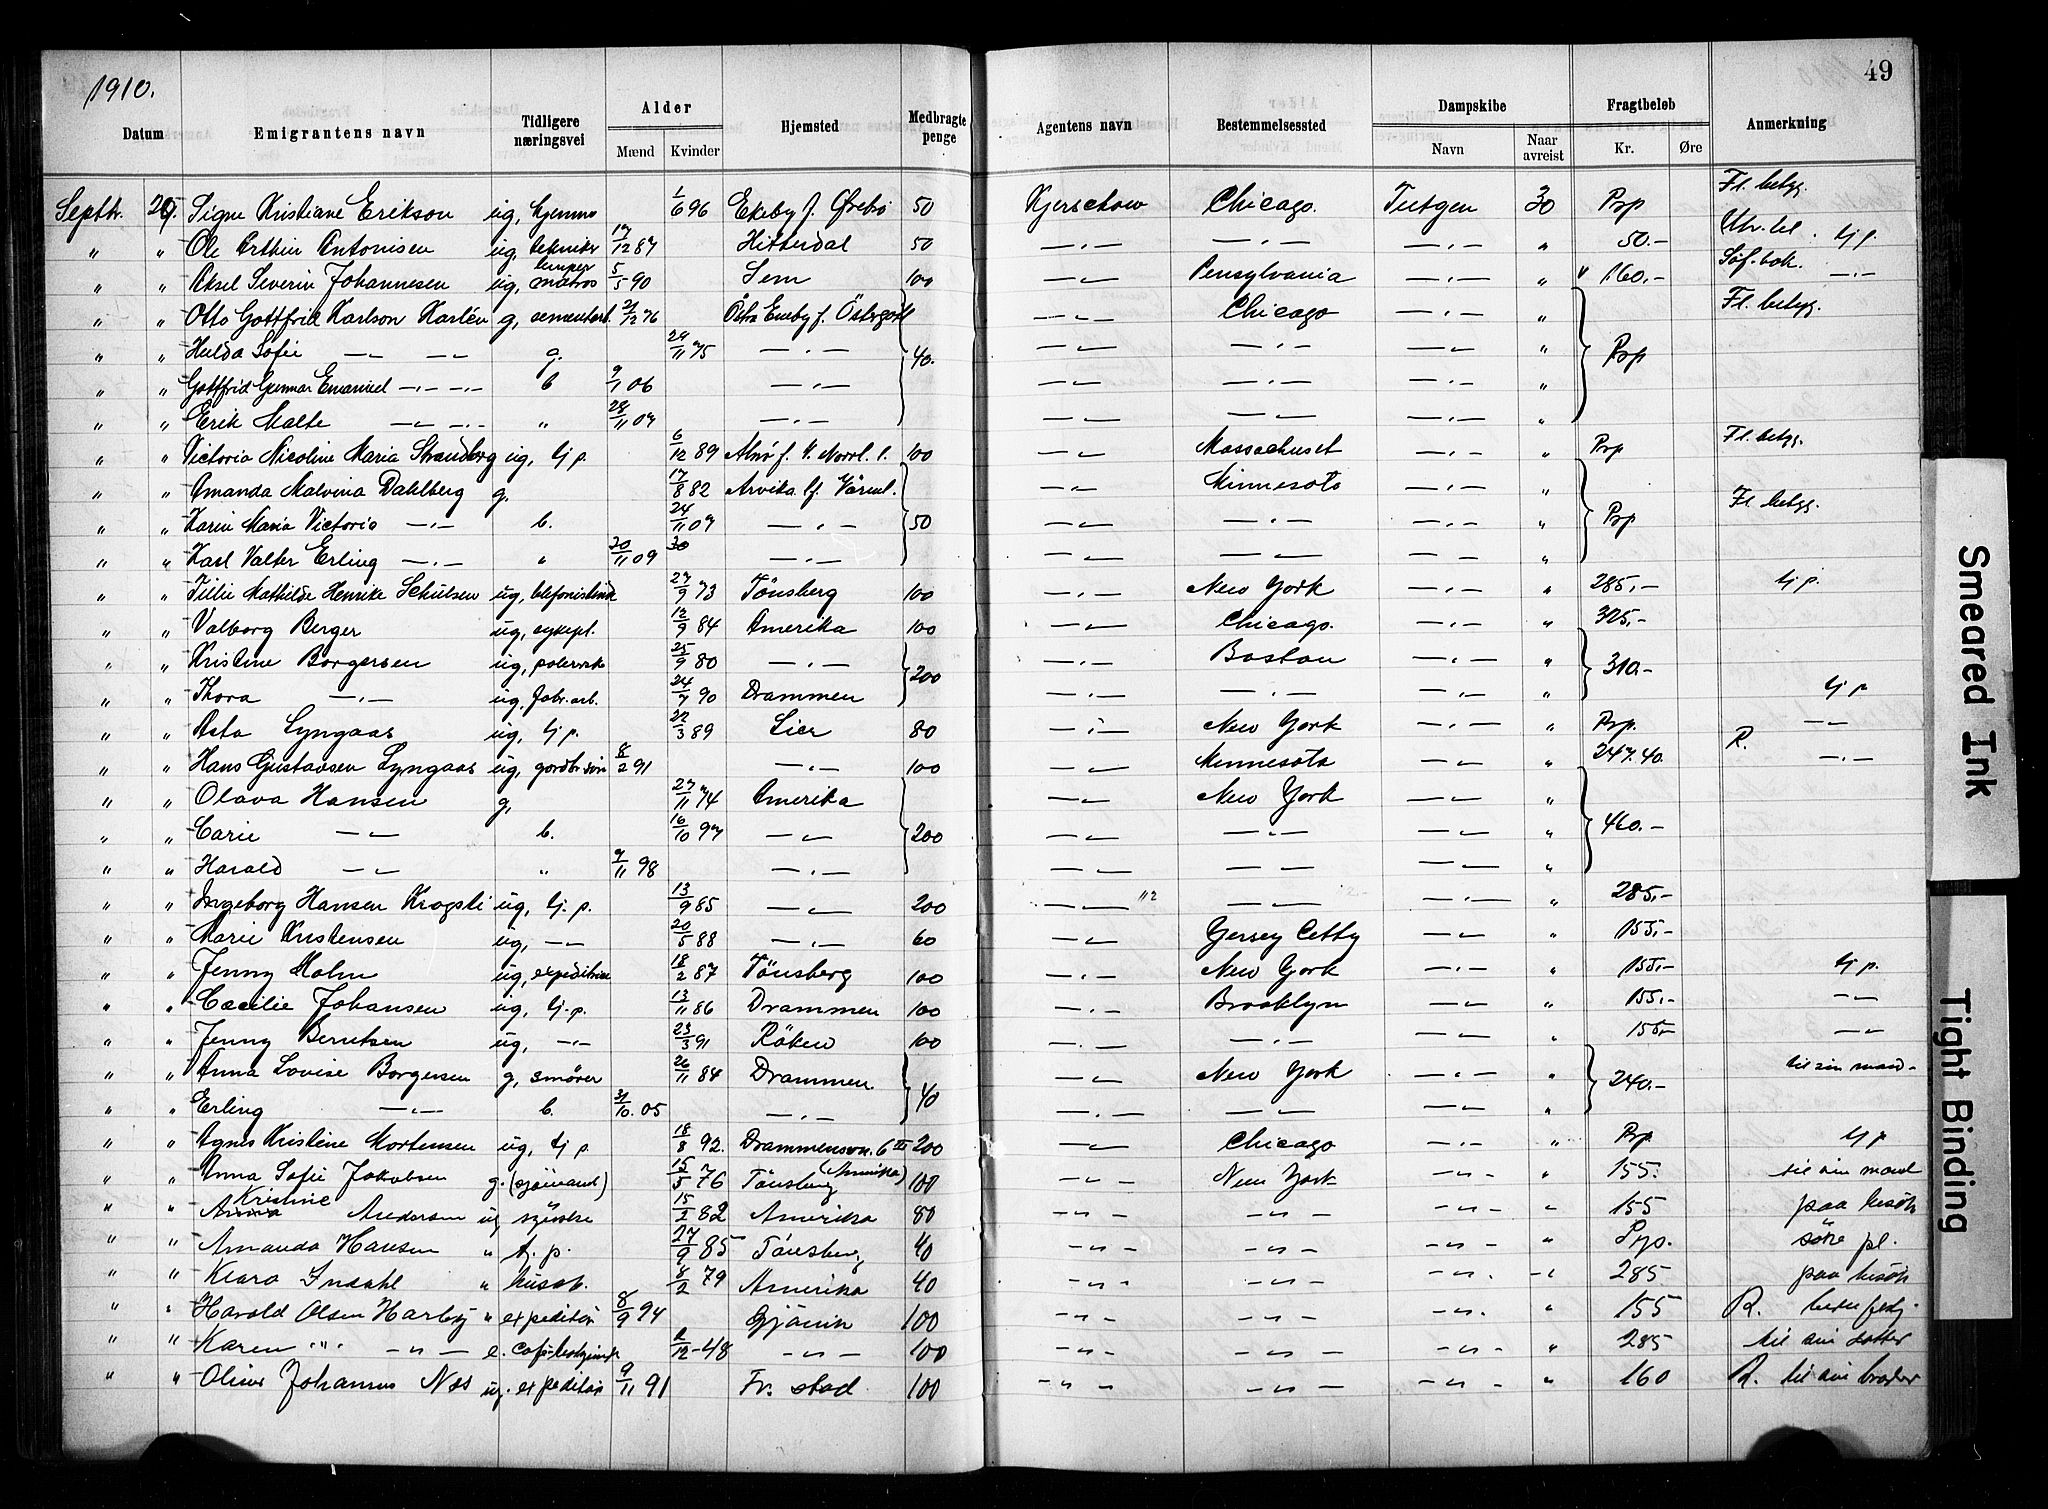 1910.
49
Datum | Emigrantens navn | Tidligere næringsvei | Alder Mænd | Kvinder | Hjemsted | Medbragte penge | Agentens navn | Bestemmelsessted | Dampskibe Navn | Naar avreist | Fragtbeløb Kr. | Øre | Anmerkning
Septbr. 29. Signe Kristiane Erikson ug, hjemme 1/6 96 Ekeby f. Örebro 50 Kjerschow Chicago. Tietgen 30 Prp Fl. betyg.
" " Ole Arthur Antonisen ug, tekniker 17/12 87 Hitterdal 50 —"— —"— —"— " 50.- Utv. bel. tj p.
" " Aksel Severin Johannesen ug, matros 5/5 90 Sem 100 —"— Pensylvania —"— " 160.- Söf. bok. —"—
" " Otto Gottfrid Karlson Karlén g, sementarb. 21/12 76 Östra Eneby f. Östergötl —"— Chicago —"— " Fl. betyg.
" " Hulda Sofie —"— —"— g. 24/11 75 —"— 40. —"— —"— —"— " Prp
" " Gottfrid Gunnar Emanuel —"— —"— b 9/11 06 —"— —"— —"— —"— "
" " Erik Malte —"— —"— " 28/11 07 —"— —"— —"— —"— "
" " Victoria Nicoline Maria Strandberg ug, tj p. 6/12 89 Alnö f. V. Norrl. l. 100 —"— Massachuset —"— " Prp Fl. betyg.
" " Amanda Malvina Dahlberg g, 17/8 82 Arvika lf. Värml. —"— Minnesota —"— "
" " Karin Maria Victoria —"— b. 24/11 07 —"— 50 —"— —"— —"— " Prp Fl. betyg.
" " Karl Valter Erling —"— " 20/11 09 30 —"— —"— —"— —"— "
" " Tillie Mathilde Henrike Schulsen ug, telefonistinde 27/9 73 Tönsberg 100 —"— New York —"— " 285,- tj p.
" " Valborg Berger ug, sykepl. 12/9 84 Amerika 100 —"— Chicago. —"— " 325,-
" " Kristine Borgersen ug, polerske 25/9 80 —"— 200 —"— Boston —"— " 310.-
" " Thora —"— ug, fabr. arb. 24/7 90 Drammen —"— —"— —"— " tj p
" " Asta Lyngaas ug, tj p. 22/3 89 Lier 80 —"— New York —"— " Prp. —"—
" " Hans Gustavsen Lyngaas ug, gardbr. sön 8/2 91 —"— 100 —"— Minnesota —"— " 247.40. R. —"—
" " Olava Hansen g, 27/11 74 Amerika —"— New York —"— "
" " Carie —"— b. 16/10 97 —"— 200 —"— —"— —"— " 460.-
" " Harald —"— " 9/11 98 —"— —"— —"— —"— "
" " Ingeborg Hansen Krogsti ug, tj. p. 13/9 85 —"— 200 —"— —"— —"— " 285,-
" " Marie Kristensen ug, —"— 20/5 88 —"— 60 —"— Jersey Cetty —"— " 155,-
" " Jenny Malm ug, expeditrice 18/2 87 Tönsberg 100 —"— New York —"— " 155,- tj p.
" " Cæcilie Johansen ug, tj. p. 13/11 86 Drammen 100 —"— Brooklyn —"— " 155,- —"—
" " Jenny Berntsen ug, —"— 23/3 91 Röken 100 —"— —"— —"— " 155,- —"—
" " Anna Lovise Borgersen g, smörer 26/11 84 Drammen —"— New York —"— " 240.- til sin mand-
" " Erling —"— b. 31/10. 05 —"— 40 —"— —"— —"— "
" " Agnes Kristine Mortensen ug, tj p. 18/8 92. Drammensvn. 6 III 200 —"— Chicago —"— " Prp tj p
" " Anna Sofie Jakobsen g. (sjömand) 15/5 76 Tönsberg (Amerika) 100 —"— New York —"— " 155. til sin mand
" " Kristine Andersen ug syerske 15/2 82 Amerika 80 —"— —"— —"— " 155 paa besök
" " Amanda Hansen " tj. p. 27/9 85 Tönsberg 40 —"— —"— —"— " Prp. söke pl.
" " Klara Indahl " husab. 8/2 79 Amerika 40 —"— —"— —"— " 285 paa besök
" " Harald Olsen Harby " expeditör 8/9 94 Gjövik 100 —"— —"— —"— " 155 R.
" " Karen " " —"— e. 2/12-48 —"— 100 —"— —"— —"— " 285 til sin datter
" " Oliver Johannes Næs ug. expeditör 9/11 91 Fr. stad 100 —"— —"— —"— " 160 R. til sin broder
Smeared Ink
Tight Binding